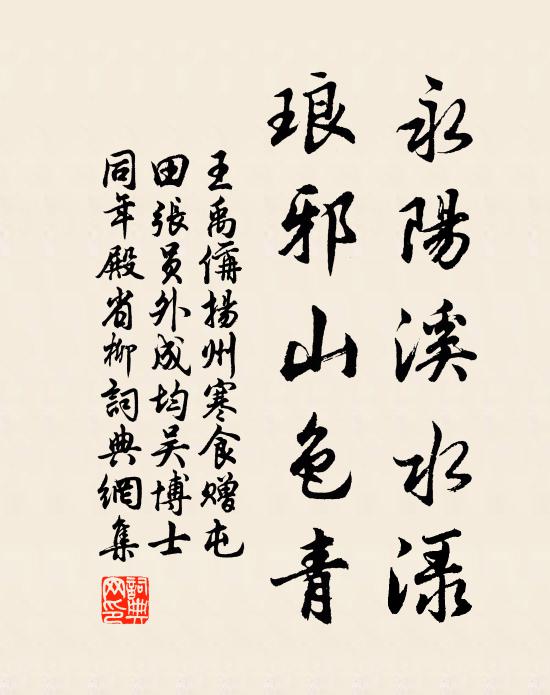 永陽溪水渌
琅邪山色青
王禹偁揚州寒食贈屯
田張員外成均吴博士
同年殿省柳詞典網集
詞典
网印